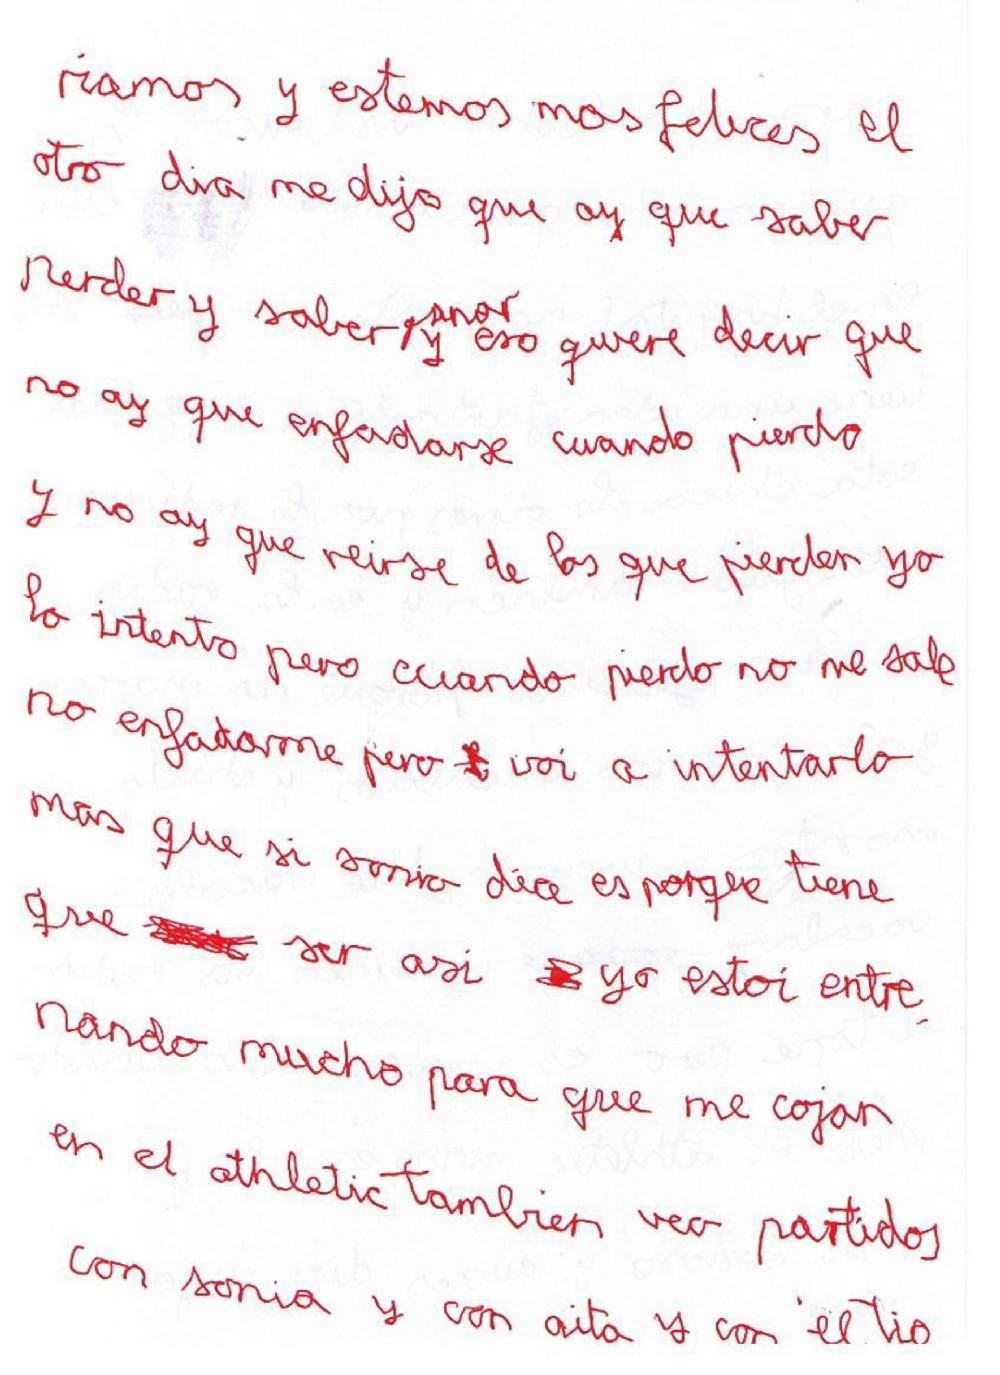 riamos y estemos mas felices el
otro dia me dijo que ay que saber
perder y saber ganar y eso quiere decir que
no ay que enfadarse cuando pierdo
y no ay que reirse de los que pierden yo
lo intento pero cuando pierdo no me sale
no enfadarme pero voi a intentarlo
mas que si sonia dice es porque tiene
que ser asi yo estoi entre
nando mucho para que me cojan
en el athletic tambien veo partidos
con sonia y con aita y con el tio